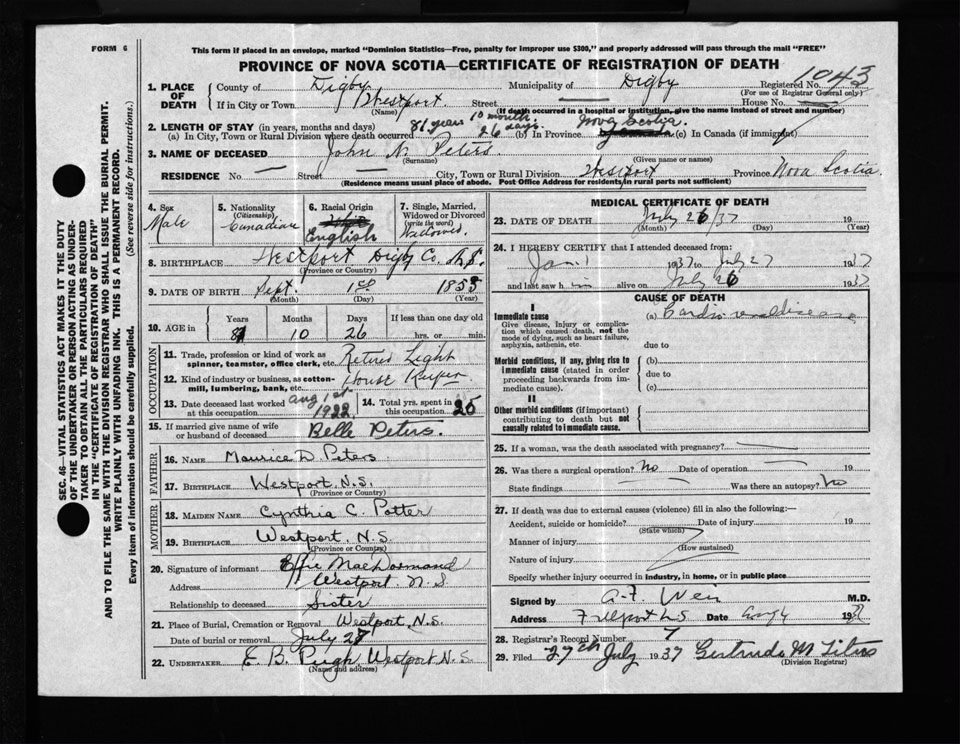 FORM 6
This form if placed in an envelope, marked "Dominion Statistics—Free, penalty for improper use $300," and properly addressed will pass through the mail "FREE"
PROVINCE OF NOVA SCOTIA—CERTIFICATE OF REGISTRATION OF DEATH
1. PLACE OF DEATH
County of Digby Municipality of Digby Registered No. 1043
(For use of Registrar General only)
If in City or Town Westport Street House No.
(Name) (If death occurred in a hospital or institution, give the name instead of street and number)
2. LENGTH OF STAY (in years, months and days)
(a) In City, Town or Rural Division where death occurred 81 years 10 month 26 days. (b) In Province Nova Scotia. (c) In Canada (if immigrant)
3. NAME OF DECEASED John N. Peters.
(Surname) (Given name or names)
RESIDENCE No. — Street — City, Town or Rural Division Westport Province Nova Scotia.
(Residence means usual place of abode. Post Office Address for residents in rural parts not sufficient)
4. Sex Male
5. Nationality (Citizenship) Canadian
6. Racial Origin English
7. Single, Married, Widowed or Divorced (write the word) Widowed.
8. BIRTHPLACE Westport Digby Co. N.S.
(Province or Country)
9. DATE OF BIRTH Sept. 1st 1855
(Month) (Day) (Year)
10. AGE in Years Months Days If less than one day old
81 10 26 hrs. or min.
OCCUPATION
11. Trade, profession or kind of work as spinner, teamster, office clerk, etc. Retired Light
12. Kind of industry or business, as cotton-mill, lumbering, bank, etc. House Keeper.
13. Date deceased last worked at this occupation Aug 1st 1922
14. Total yrs. spent in this occupation 25
15. If married give name of wife or husband of deceased Belle Peters.
FATHER
16. NAME Maurice D. Peters
17. BIRTHPLACE Westport N.S.
(Province or Country)
MOTHER
18. MAIDEN NAME Cynthia C. Potter
19. BIRTHPLACE Westport, N.S.
(Province or Country)
20. Signature of informant Effie MacDormand
Address Westport. N.S.
Relationship to deceased Sister
21. Place of Burial, Cremation or Removal Westport, N.S.
Date of burial or removal July 28
22. UNDERTAKER E. B. Pugh Westport N.S.
(Name and address)
MEDICAL CERTIFICATE OF DEATH
23. DATE OF DEATH July 26/37 19
(Month) (Day) (Year)
24. I HEREBY CERTIFY that I attended deceased from:
Jan 1 1937 to July 27 1937
and last saw him alive on July 26 1937
CAUSE OF DEATH
I
Immediate cause
Give disease, injury or complication which caused death, not the mode of dying, such as heart failure, asphyxia, asthenia, etc.
(a) Cardio renal disease
due to
Morbid conditions, if any, giving rise to immediate cause (stated in order proceeding backwards from immediate cause).
(b)
due to
(c)
II
Other morbid conditions (if important) contributing to death but not causally related to immediate cause.
25. If a woman, was the death associated with pregnancy? —
26. Was there a surgical operation? No Date of operation — 19
State findings Was there an autopsy? No
27. If death was due to external causes (violence) fill in also the following:—
Accident, suicide or homicide? Date of injury 19
(State which)
Manner of injury
(How sustained)
Nature of injury
Specify whether injury occurred in industry, in home, or in public place
Signed by A.F. Weir M.D.
Address Freeport N.S Date Aug 4 19
28. Registrar's Record Number 7
29. Filed 27th July 1937 Gertrude M Titus
(Division Registrar)
SEC. 46—VITAL STATISTICS ACT MAKES IT THE DUTY
OF THE UNDERTAKER OR PERSON ACTING AS UNDER-
TAKER TO OBTAIN ALL THE PARTICULARS REQUIRED
IN THE "CERTIFICATE OF REGISTRATION OF DEATH"
AND TO FILE THE SAME WITH THE DIVISION REGISTRAR WHO SHALL ISSUE THE BURIAL PERMIT.
WRITE PLAINLY WITH UNFADING INK. THIS IS A PERMANENT RECORD.
Every item of information should be carefully supplied. (See reverse side for instructions.)